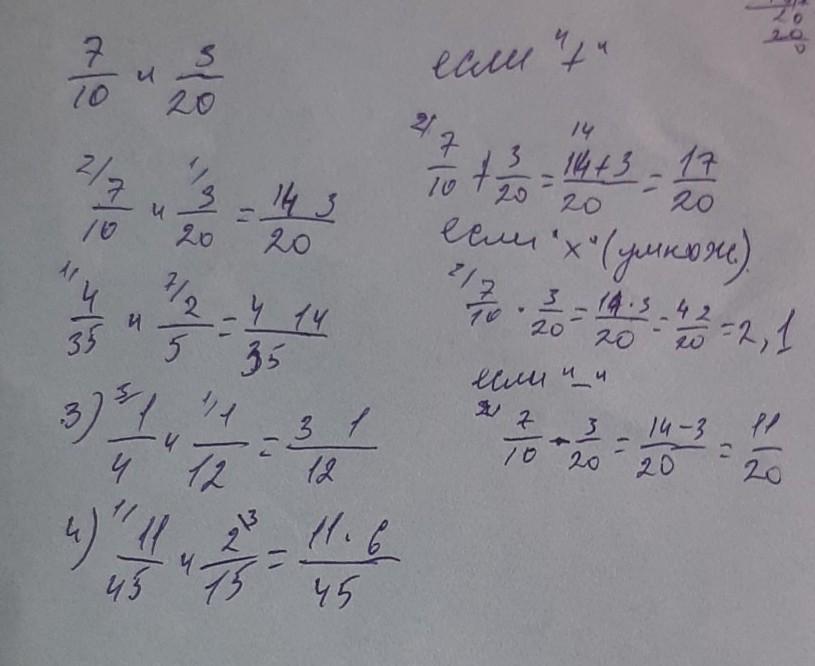 7/10 и 3/20
2/ 7/10 и 1/ 3/20 = 14 3/20
1/ 4/35 и 7/ 2/5 = 4 14/35
3) 3/ 1/4 и 1/ 1/12 = 3 1/12
4) 1/ 11/45 и 2/15 \3 = 11 · 6/45
20
20
0
если "+"
2/ 7/10 + 3/20 = 14+3/20 = 17/20
14
если "х" (умнож.)
2/ 7/10 · 3/20 = 14 · 3/20 = 42/20 = 2,1
если "–"
2/ 7/10 - 3/20 = 14-3/20 = 11/20